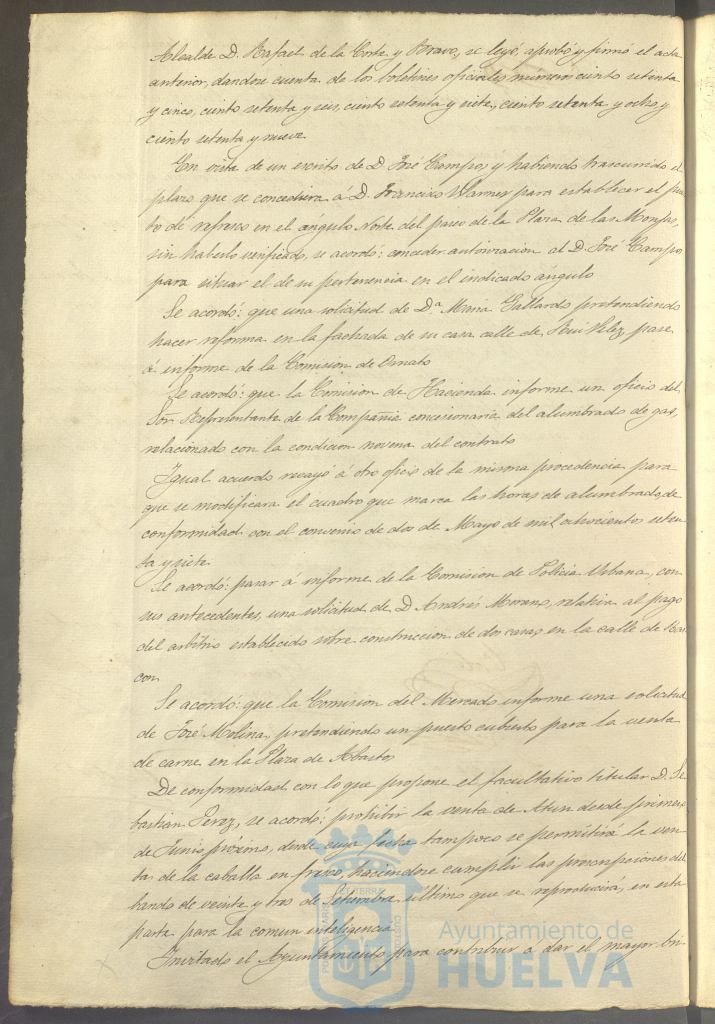 Alcalde D. Rafael de la Corte y Bravo, se leyó, aprobó y firmó el acta
anterior, dandose cuenta de los boletines oficiales número ciento setenta
y cinco, ciento setenta y seis, ciento setenta y siete, ciento setenta y ocho y
ciento setenta y nueve.
En vista de un escrito de D. José Campos, y habiendo trascurrido el
plazo que se concediera á D. Francisco para establecer el pues
to de refresco en el ángulo Norte del paseo de la Plaza de las Monjas,
sin haberlo verificado, se acordó: conceder autorizacion al D. José Campos
para situar el de su pertenencia en el indicado ángulo
Se acordó: que una solicitud de Dª Maria Gallardo pretendiendo
hacer reforma en la fachada de su casa calle de Rui Velez, pase
á informe de la Comision de Ornato
Se acordó: que la Comision de Hacienda informe un oficio del
Sor. Representante de la Compañia concesionaria del alumbrado de gas,
relacionado con la condicion novena del contrato
Igual acuerdo recayó á otro oficio de la misma procedencia para
que se modificara el cuadro que marca las horas de alumbrado, de
conformidad con el convenio de dos de Mayo de mil ochocientos seten
ta y siete.
Se acordó: pasar á informe de la Comision de Policia Urbana, con
sus antecedentes, una solicitud de D. Andrés Moreno, relativa al pago
del arbitrio establecido sobre construccion de dos casas en la calle de Ras
con.
Se acordó: que la Comision del Mercado informe una solicitud
de José Molina, pretendiendo un puesto cubierto para la venta
de carne en la Plaza de Abastos
De conformidad con lo que propone el facultativo titular D. Se
bastian Perez, se acordó: prohibir la venta de Atun desde primero
de Junio próximo, desde cuya fecha tampoco se permitirá la ven
ta de la caballa en fresco, haciendose cumplir las prescripciones del
bando de veinte y tres de Setiembre último que se reproducirá, en esta
parte para la comun inteligencia
Invitado el Ayuntamiento para contribuir á dar el mayor bri
Ayuntamiento de
HUELVA